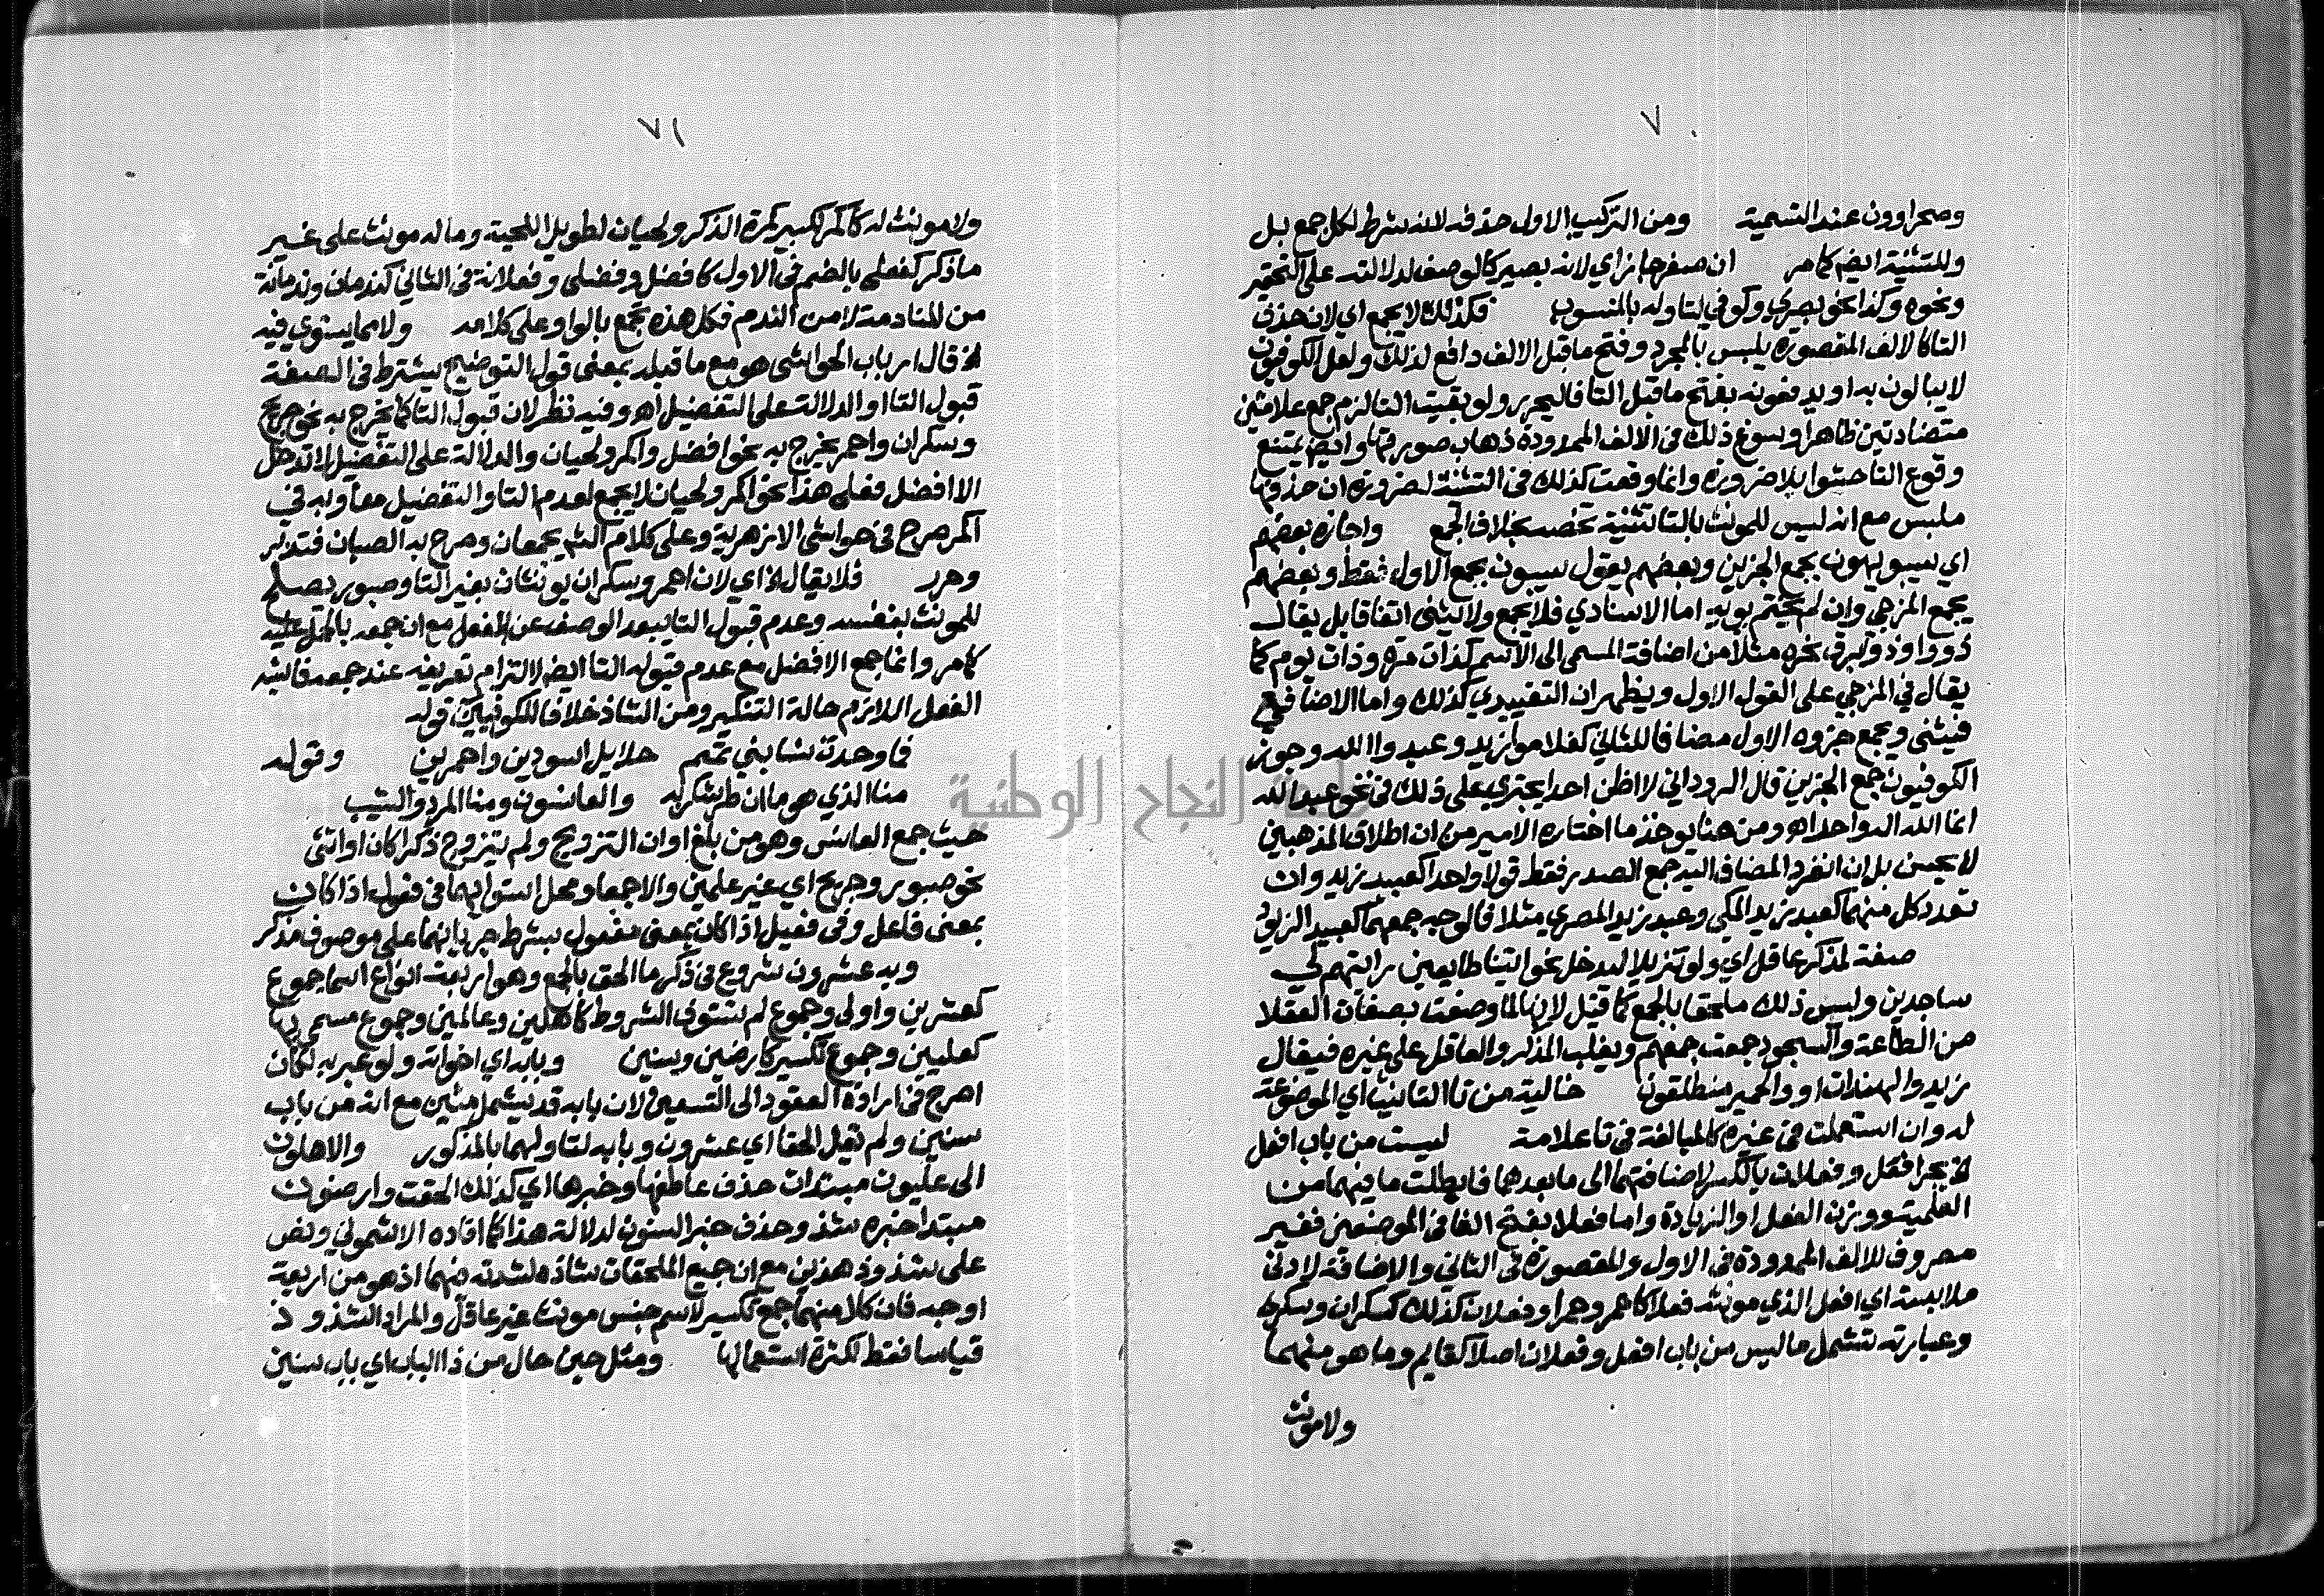 ٧٠
وصحراوون عند التسمية ومن التركيب الاول حذفه لانه شرط لكل جمع بل
وللتثنية ايضا كما مر ان صغر جاز اي لانه يصير كالوصف لدلالته على التحقير
ونحوه وكذا نحو بصري وكوفي لتاوله بالمنسوب فكذلك لا يجمع اي لان حذف
التا كالالف المقصورة يلبس بالمجرد وفتح ما قبل الالف دافع لذلك ولعل الكوفيون
لا يبالون به او يدفعونه بفتح ما قبل التا فاليحرر ولو بقيت التا لزم جمع علامتين
متضادتين ظاهرا وسوغ ذلك في الالف الممدودة ذهاب صورتها وايض يمتنع
وقوع التا حشوا بلا ضرورة وانما وقعت كذلك في التثنية لضرورة ان حذفها
ملبس مع انه ليس للمونث بالتا تثنية تخصه بخلاف الجمع واجازه بعضهم
اي سيبويهون بجمع الجزين وبعضهم يقول سيبون بجمع الاول فقط وبعضهم
يجمع المزجي وان لم يختم بويه اما الاسنادي فلا يجمع ولا يثنى اتفاقا بل يقال
ذووا وذوو برق نحره مثلا من اضافة المسمى الى الاسم كذات مرة وذات يوم كما
يقال في المزجي على القول الاول ويظهر ان التقييدي كذلك واما الاضافي
فيثنى ويجمع جزوه الاول مضافا للثاني كغلاموا زيد وعبدوا الله وجوز
الكوفيون جمع الجزين قال الروداني لا اظن احدا يجتري على ذلك في نحو عبد الله
انما الله اله واحد اه ومن هنا يوخذ ما اختاره الامير من ان اطلاق المذهبين
لا يحسن بل ان انفرد المضاف اليه جمع الصدر فقط قولا واحدا كعبيد زيد وان
تعدد كل منهما كعبد زيد المكي وعبد زيد المصري مثلا فالوجه جمعهما كعبيد الزيود
صفة لمذكر عاقل اي ولو تنزيلا ليدخل نحو اتينا طايعين رايتهم لي
ساجدين وليس ذلك ملحقا بالجمع كما قيل لانها لما وصفت بصفات العقلا
من الطاعة والسجود جمعت جمعهم ويغلب المذكر والعاقل على غيره فيقال
زيد والهندات او والحمير منطلقون خالية من تا التانيث اي الموضوعة
له وان استعملت في غيره كالمبالغة في تا علامة ليست من باب افعل
الخ بجر افعل وفعلان بالكسر لاضافتهما الى ما بعدهما فابطلت ما فيهما من
العلمية ووزن الفعل او الزيادة واما فعلا بفتح الفا في الموضعين فغير
مصروف للالف الممدودة في الاول والمقصورة في الثاني والاضافة لادنى
ملابسة اي افعل الذي مونثه فعلا كاحمر وحمرا وفعلان كذلك كسكران وسكرى
وعبارته تشمل ما ليس من باب افعل وفعلان اصلا كقايم وما هو منهما
ولا مونث
٧١
ولا مونث له كاكمر لكبير كمرة الذكر ولحيان لطويل اللحية وما له مونث على غير
ما ذكر كفعلى بالضم في الاول كافضل وفضلى وفعلانة في الثاني كندمان وندمانة
من المنادمة لا من الندم فكل هذه تجمع بالواو على كلامه ولا مما يستوي فيه
الخ قال ارباب الحواشي هو مع ما قبله بمعنى قول التوضيح يشترط في الصفة
قبول التا او الدلالة على التفضيل اه وفيه نظر لان قبول التا كما يخرج به نحو جريح
وسكران واحمر يخرج به نحو افضل واكمر ولحيان والدلالة على التفضيل لا تدخل
الا افضل فعلى هذا نحو اكمر ولحيان لا يجمع لعدم التا والتفضيل معا وبه في
اكمر صرح في حواشي الازهرية وعلى كلام الش يجمعان وصرح به الصبان فتدبر
وحرر فلا يقال الخ اي لان احمر وسكران يونثان بغير التا وصبور يصلح
للمونث بنفسه وعدم قبول التا يبعد الوصف عن الفعل مع ان جمعه بالحمل عليه
كما مر وانما جمع الافضل مع عدم قبوله التا ايض لالتزام تعريفه عند جمعه فاشبه
الفعل اللازم حالة التنكير ومن الشاذ خلافا للكوفيين قوله
فما وجدت نسا بني تميم حلايل اسودين واحمرين وقوله
منا الذي هو ما ان طر شاربه والعانسون ومنا المرد والشيب
حيث جمع العانس وهو من بلغ اوان التزويج ولم يتزوج ذكرا كان او انثى
نحو صبور وجريح اي غير علمين والا جمعا ومحل استوائهما في فعول اذا كان
بمعنى فاعل وفي فعيل اذا كان بمعنى مفعول بشرط جريانهما على موصوف مذكر
وبه عشرون شروع في ذكر ما الحق بالجمع وهو اربعة انواع اسما جموع
كعشرين واولي وجموع لم تستوف الشروط كاهلين وعالمين وجموع مسمى بها
كعليين وجموع تكسير كارضين وسنين وبابه اي اخواته ولو عبر به لكان
اصرح في ارادة العقود الى التسعين لان بابه قد يشمل مئين مع انه من باب
سنين ولم يقل الحقا اي عشرون وبابه لتاولهما بالمذكور والاهلون
الى عليون مبتدات حذف عاطفها وخبرها اي كذلك الحقت وارضون
مبتدا خبره شذ وحذف خبر السنون لدلالة هذا كما افاده الاشموني ونص
على شذوذ هذين مع ان جميع الملحقات شاذة لشدته فيهما اذ هو من اربعة
اوجه فان كلا منهما جمع تكسير لاسم جنس مونث غير عاقل والمراد الشذوذ
قياسا فقط لكثرة استعمالها ومثل حين حال من ذا الباب اي باب سنين
جامعة النجاح الوطنية